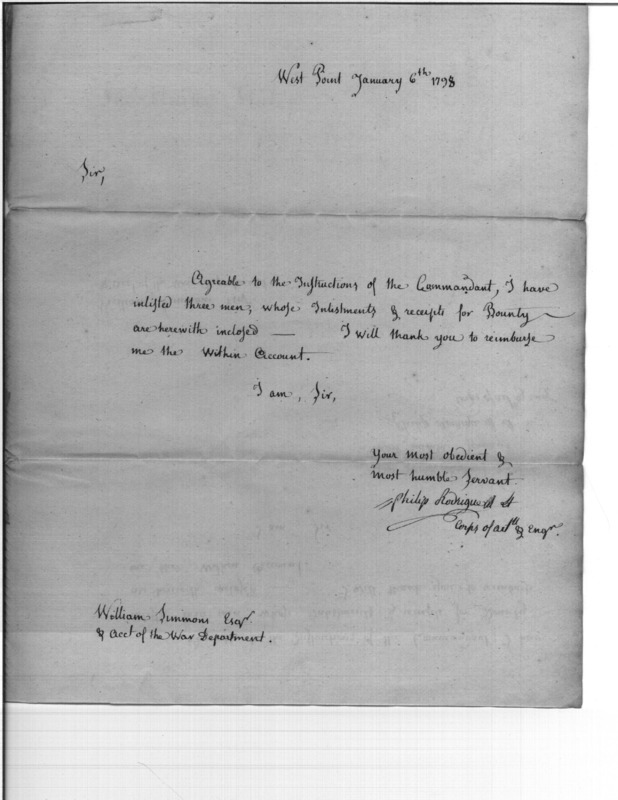 West Point January 6th 1798
Sir,
Agreable to the Instructions of the Commandant, I have
inlisted three men, whose Inlistments & receipts for Bounty
are herewith inclosed — I will thank you to reimburse
me the Within Account.
I am, Sir,
Your most obedient &
most humble Servant
Philip Rodrigue Lt
Corps of artts & Engrs.
William Simmons Esqr.
& Acct of the War Department.